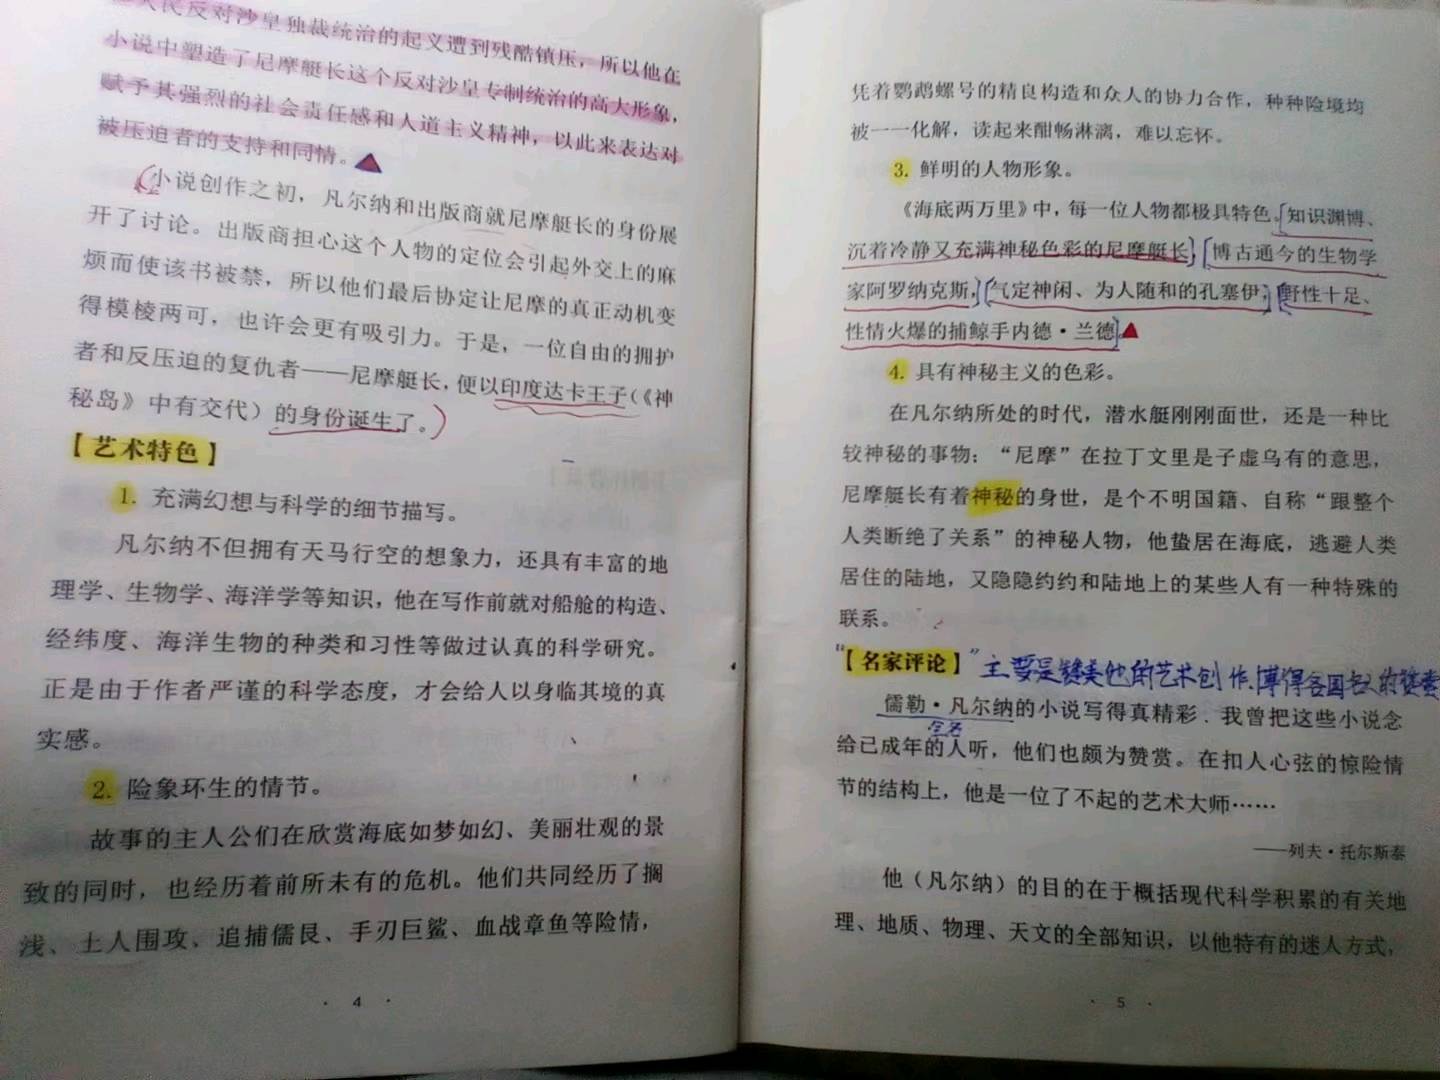 人民反对沙皇独裁统治的起义遭到残酷镇压，所以他在
小说中塑造了尼摩艇长这个反对沙皇专制统治的高大形象，
赋予其强烈的社会责任感和人道主义精神，以此来表达对
被压迫者的支持和同情。
小说创作之初，凡尔纳和出版商就尼摩艇长的身份展
开了讨论。出版商担心这个人物的定位会引起外交上的麻
烦而使该书被禁，所以他们最后协定让尼摩的真正动机变
得模棱两可，也许会更有吸引力。于是，一位自由的拥护
者和反压迫的复仇者——尼摩艇长，便以印度达卡王子（《神
秘岛》中有交代）的身份诞生了。
【艺术特色】
1. 充满幻想与科学的细节描写。
凡尔纳不但拥有天马行空的想象力，还具有丰富的地
理学、生物学、海洋学等知识，他在写作前就对船舱的构造、
经纬度、海洋生物的种类和习性等做过认真的科学研究。
正是由于作者严谨的科学态度，才会给人以身临其境的真
实感。
2. 险象环生的情节。
故事的主人公们在欣赏海底如梦如幻、美丽壮观的景
致的同时，也经历着前所未有的危机。他们共同经历了搁
浅、土人围攻、追捕儒艮、手刃巨鲨、血战章鱼等险情，
· 4 ·
凭着鹦鹉螺号的精良构造和众人的协力合作，种种险境均
被一一化解，读起来酣畅淋漓，难以忘怀。
3. 鲜明的人物形象。
《海底两万里》中，每一位人物都极具特色。知识渊博、
沉着冷静又充满神秘色彩的尼摩艇长，博古通今的生物学
家阿罗纳克斯，气定神闲、为人随和的孔塞伊，野性十足、
性情火爆的捕鲸手内德·兰德。
4. 具有神秘主义的色彩。
在凡尔纳所处的时代，潜水艇刚刚面世，还是一种比
较神秘的事物；“尼摩”在拉丁文里是子虚乌有的意思，
尼摩艇长有着神秘的身世，是个不明国籍、自称“跟整个
人类断绝了关系”的神秘人物，他蛰居在海底，逃避人类
居住的陆地，又隐隐约约和陆地上的某些人有一种特殊的
联系。
“【名家评论】” 主要是赞美他的艺术创作，博得各国名人的赞赏
儒勒·凡尔纳的小说写得真精彩．我曾把这些小说念
全名
给已成年的人听，他们也颇为赞赏。在扣人心弦的惊险情
节的结构上，他是一位了不起的艺术大师……
——列夫·托尔斯泰
他（凡尔纳）的目的在于概括现代科学积累的有关地
理、地质、物理、天文的全部知识，以他特有的迷人方式，
· 5 ·